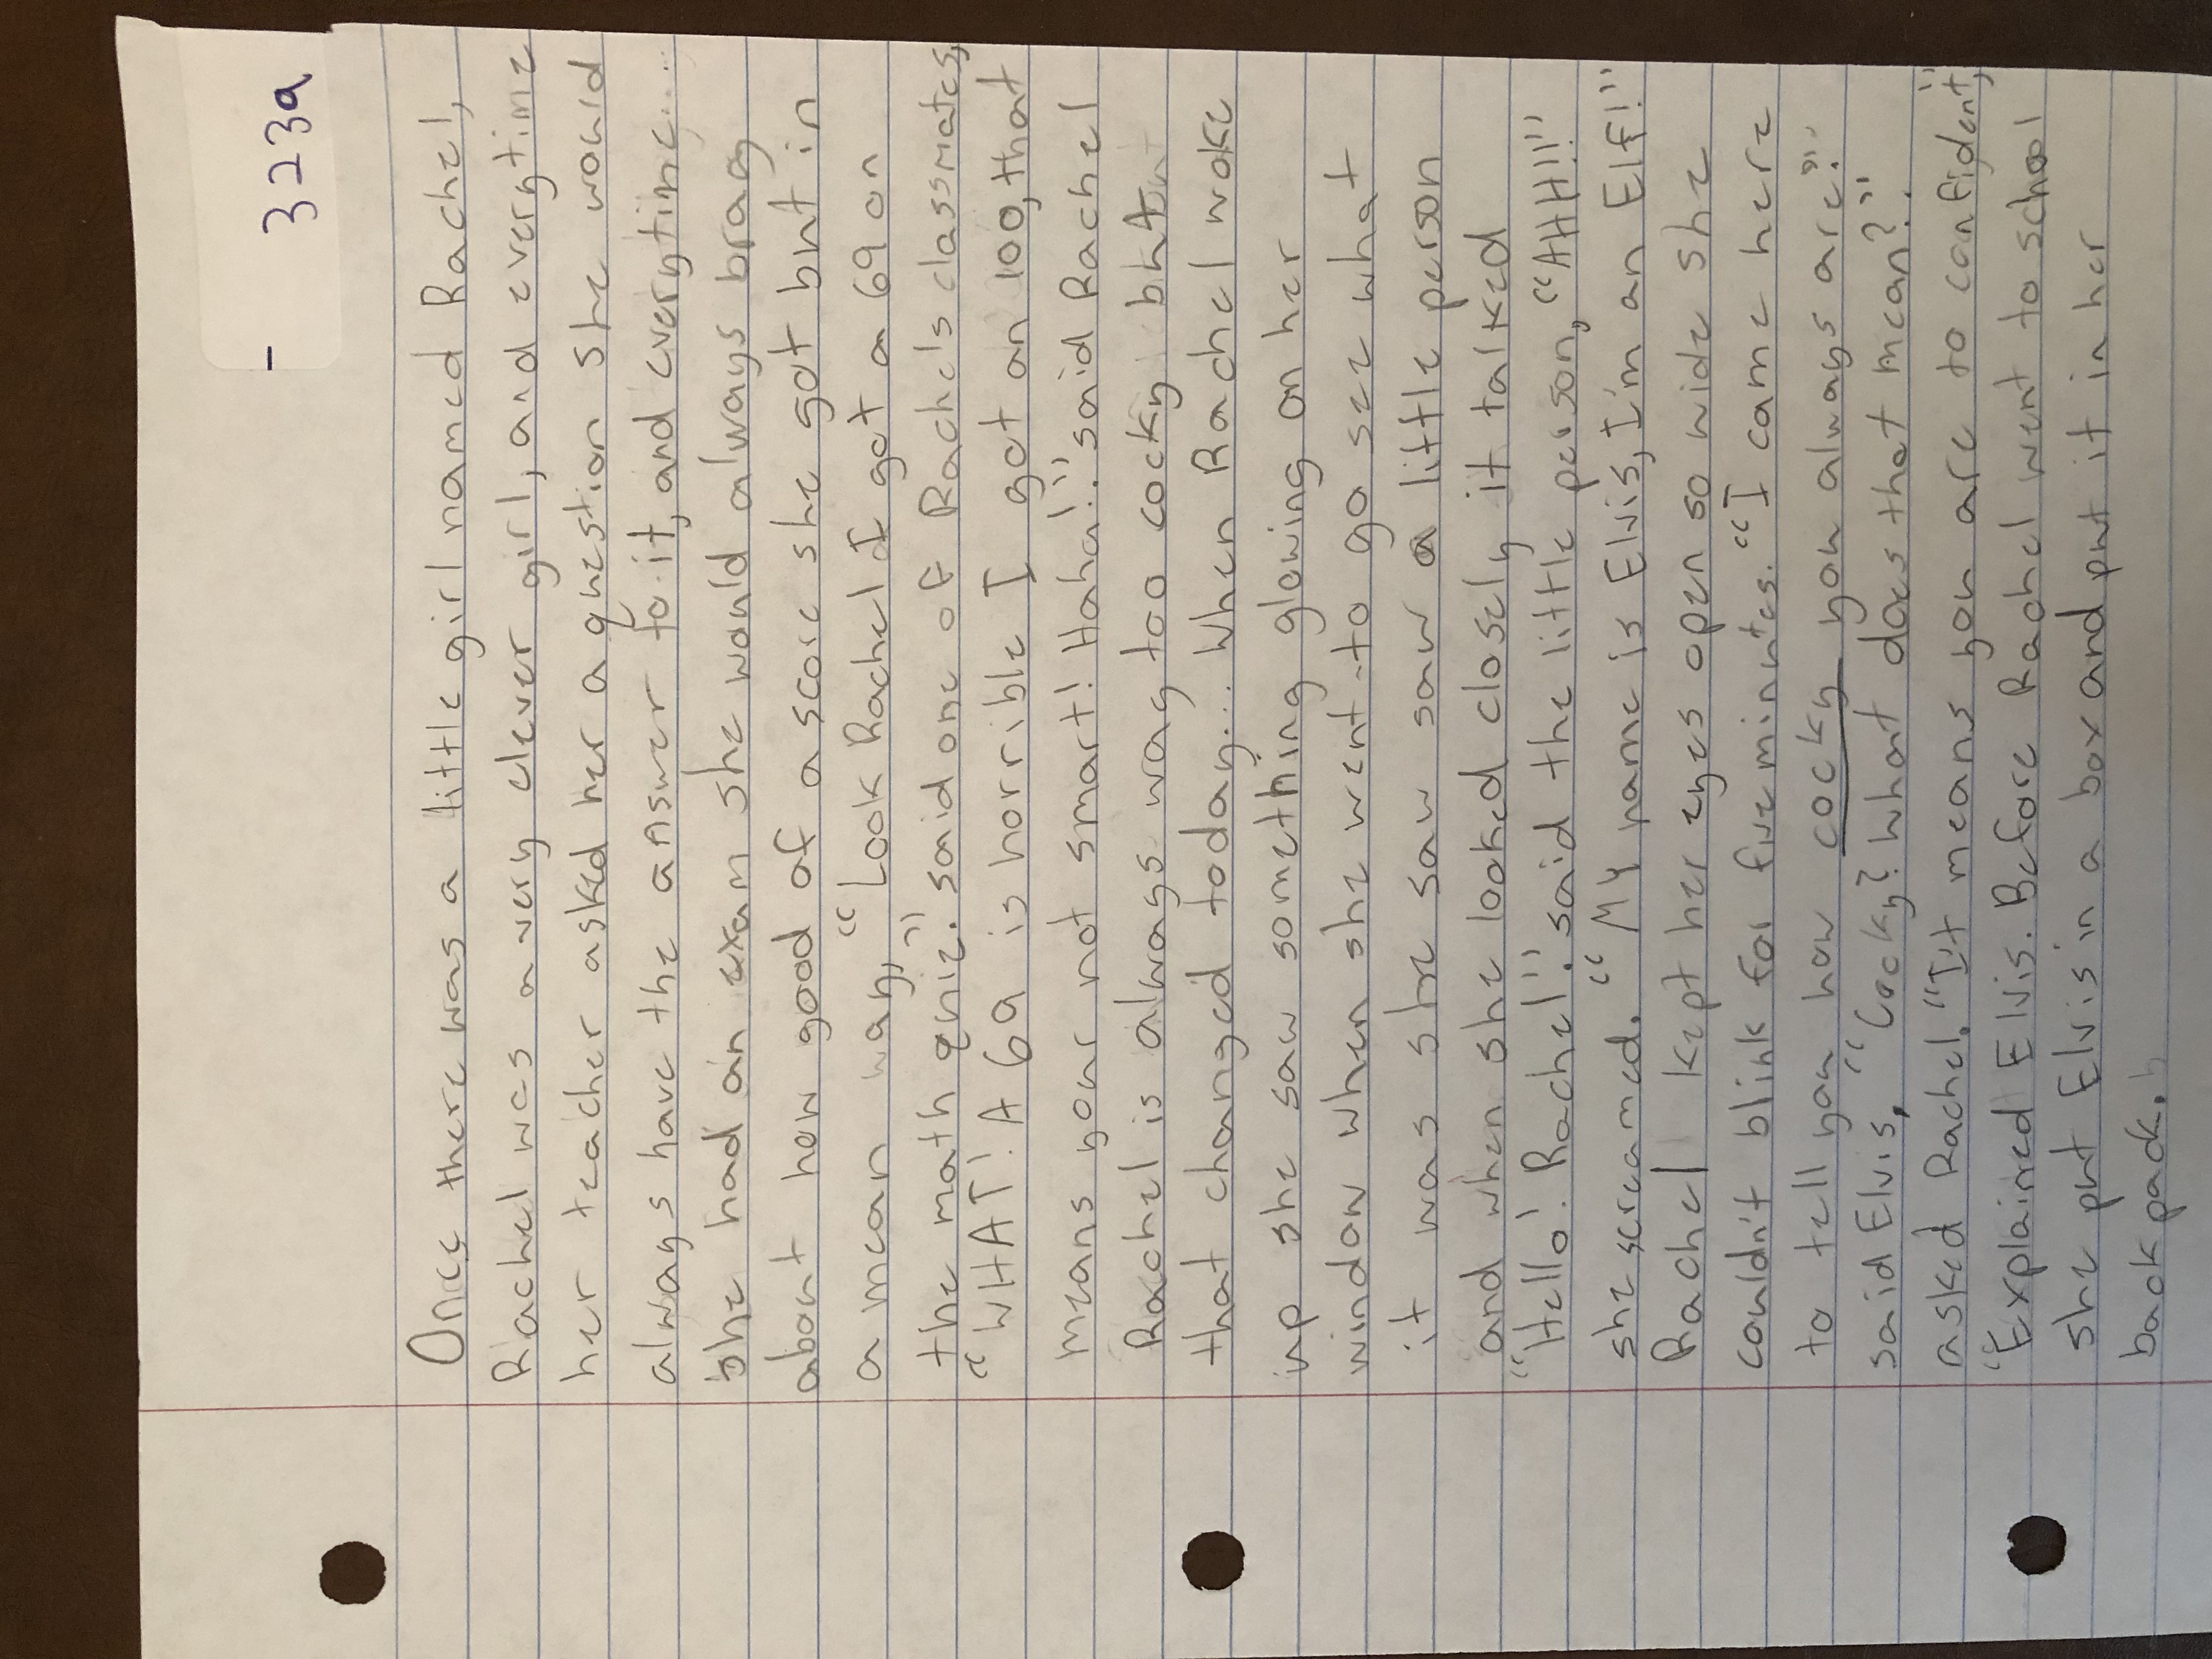 - 323a
Once there was a little girl named Rachel,
Rachel was a very clever girl, and everytime
her teacher asked her a question she would
always have the answer to it, and everytime....
she had an exam she would always brag
about how good of a score she got but in
a mean way, "Look Rachel I got a 69 on
the math quiz." said one of Rachel's classmates,
"WHAT! A 69 is horrible I got an 100, that
means your not smart! Haha!." said Rachel
Rachel is always way too cocky but
that changed today... When Rachel woke
up she saw something glowing on her
window when she went to go see what
it was she saw saw a little person
and when she looked closely it talked
"Hello! Rachel!." said the little person, "AHH!!"
she screamed. "MY name is Elvis, I'm an Elf!"
Rachel kept her eyes open so wide she
couldn't blink for five minutes. "I came here
to tell you how cocky you always are."
said Elvis, "Cocky? What does that mean?."
asked Rachel. "It means you are to confident,"
"Explained Elvis. Before Rachel went to school
she put Elvis in a box and put it in her
backpack.